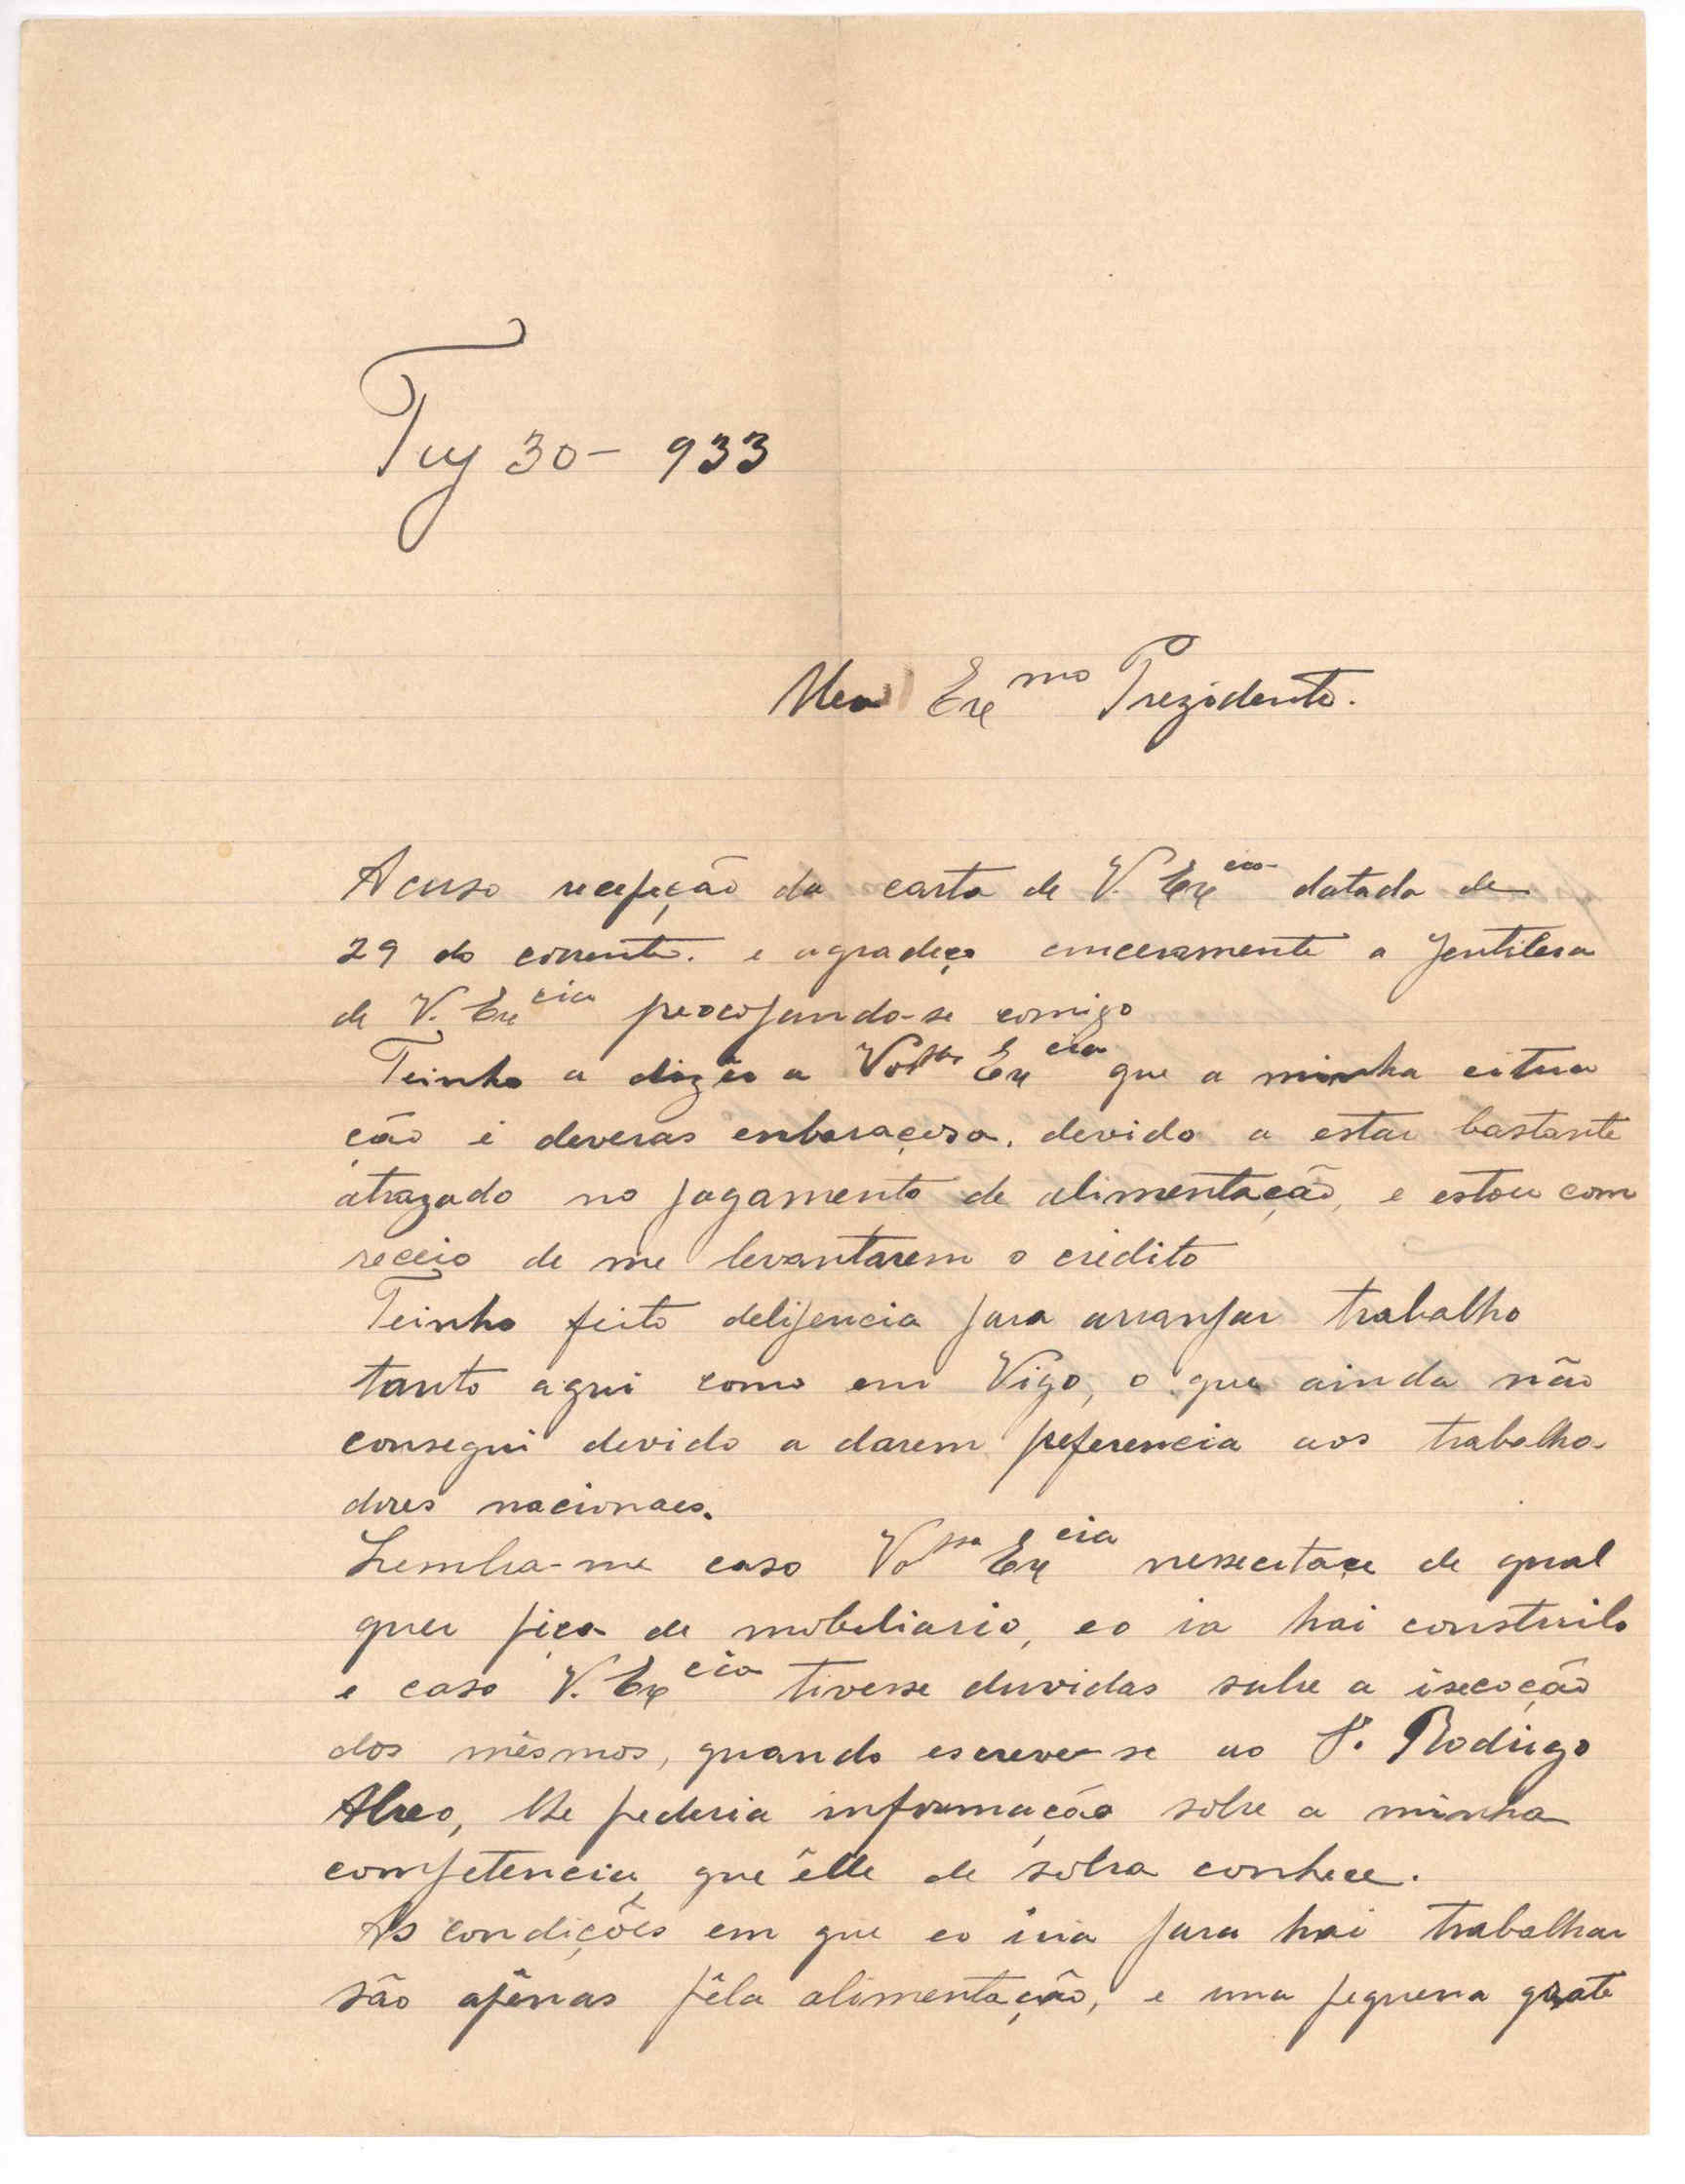 Tuy 30 - 933
Meu Exmo Prezidente.
Acuso recepção da carta de V. Excia datada de
29 do corrente. e agradeço cinceramente a jentilesa
de V. Excia preocopando-se comigo
Teinho a dizer a Vossa Excia que a minha citua
ção é deveras enbaraçosa. devido a estar bastante
atrazado no pagamento de alimentação, e estou com
receio de me levantarem o crédito
Teinho feito delijencia para arranjar trabalho
tanto aqui como em Vigo, o que ainda não
consegui devido a darem preferencia aos trabalha-
dores nacionaes.
Lembra-me caso Vossa Excia nessecitace de qual
quer peça de mobeliario, eo ia hai construilo
e caso V. Excia tivesse duvidas sobre a isecoção
dos mêsmos, quando escreve-se ao Sr. Rodrigo
Abreo, lhe pederia informação sobre a minha
competencia que êlle de sobra conhece.
As condições em que eo iria para hai trabalhar
são apênas pêla alimentação, e uma pequena grate